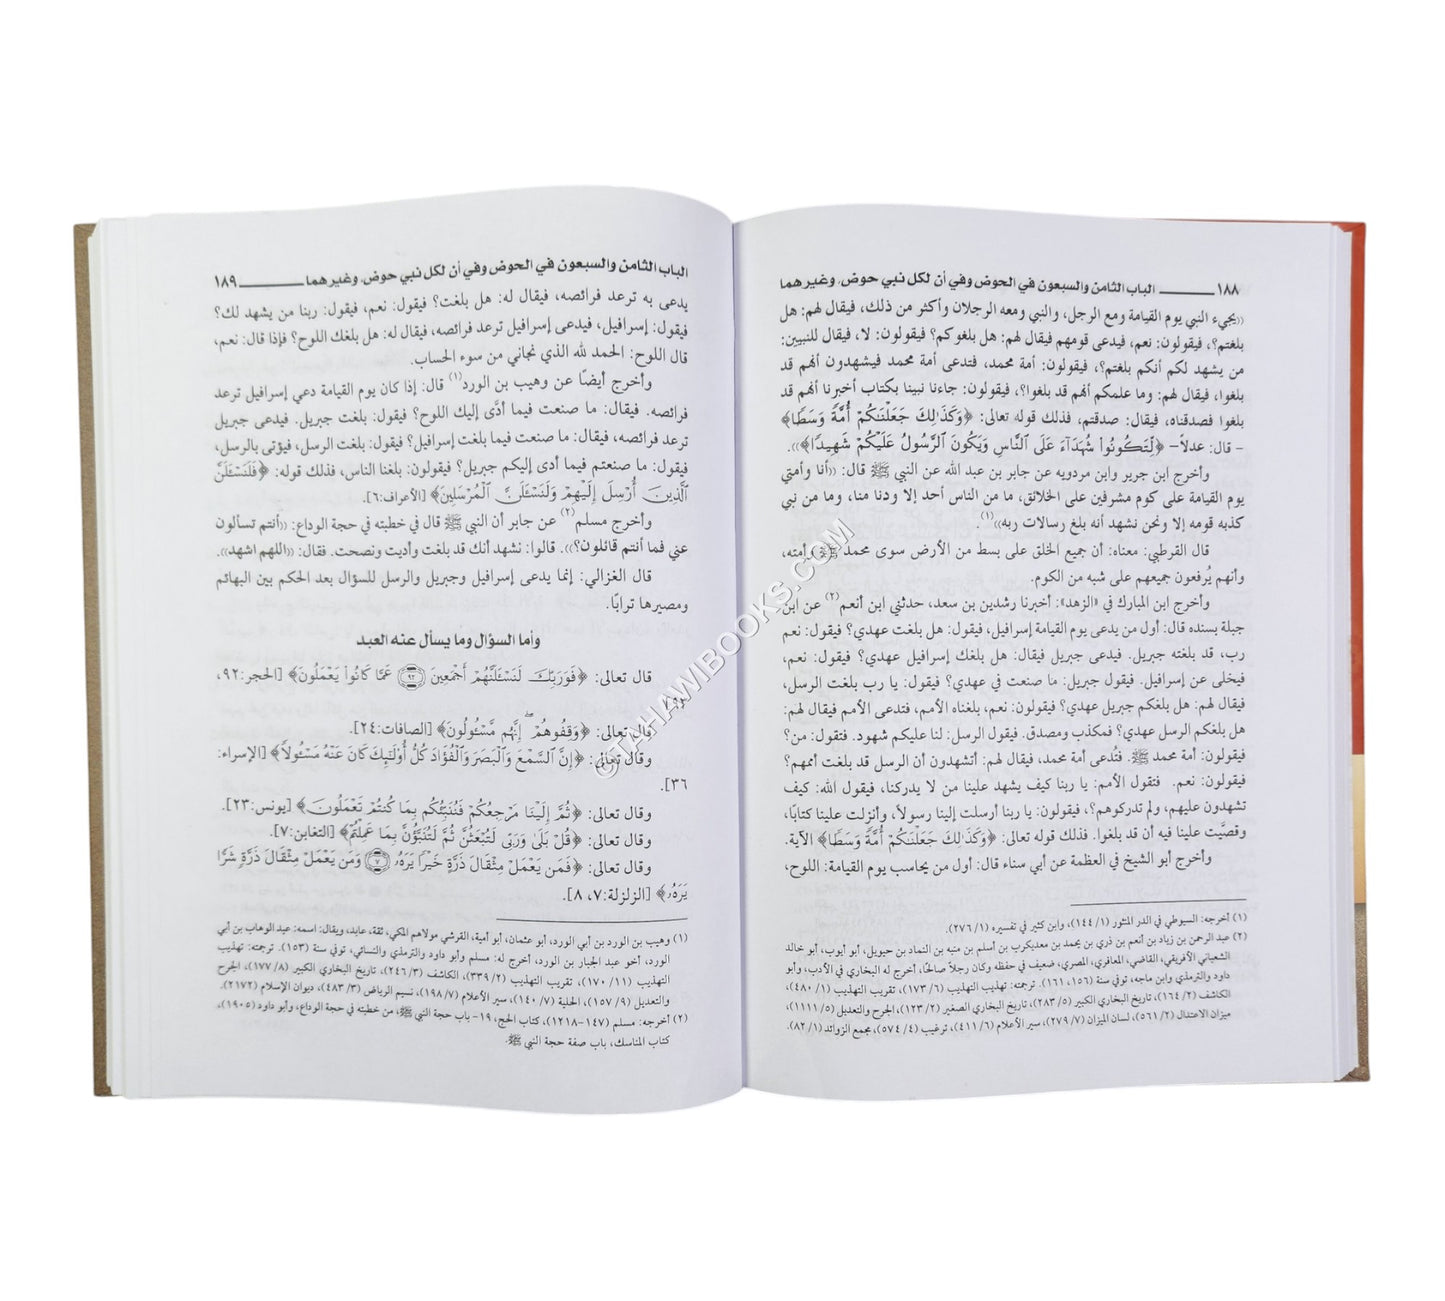 ١٨٨ ــــــــ الباب الثامن والسبعون في الحوض وفي أن لكل نبي حوض، وغيرهما
((يجيء النبي يوم القيامة ومع الرجل، والنبي ومعه الرجلان وأكثر من ذلك، فيقال لهم: هل
بلغتم؟، فيقولون: نعم، فيدعى قومهم فيقال لهم: هل بلغوكم؟ فيقولون: لا، فيقال للنبيين:
من يشهد لكم أنكم بلغتم؟، فيقولون: أمة محمد، فتدعى أمة محمد فيشهدون أنهم قد
بلغوا، فيقال لهم: وما علمكم أنهم قد بلغوا؟، فيقولون: جاءنا نبينا بكتاب أخبرنا أنهم قد
بلغوا فصدقناه، فيقال: صدقتم، فذلك قوله تعالى: ﴿وَكَذَٰلِكَ جَعَلْنَٰكُمْ أُمَّةً وَسَطًا﴾
- قال: عدلاً- ﴿لِّتَكُونُوا۟ شُهَدَآءَ عَلَى ٱلنَّاسِ وَيَكُونَ ٱلرَّسُولُ عَلَيْكُمْ شَهِيدًا﴾)).
وأخرج ابن جرير وابن مردويه عن جابر بن عبد الله عن النبي ﷺ قال: ((أنا وأمتي
يوم القيامة على كوم مشرفين على الخلائق، ما من الناس أحد إلا ودنا منا، وما من نبي
كذبه قومه إلا ونحن نشهد أنه بلغ رسالات ربه))(١).
قال القرطبي: معناه: أن جميع الخلق على بسط من الأرض سوى محمد ﷺ وأمته،
وأنهم يُرفعون جميعهم على شبه من الكوم.
وأخرج ابن المبارك في ((الزهد)): أخبرنا رشدين بن سعد، حدثني ابن أنعم(٢) عن ابن
جبلة بسنده قال: أول من يدعى يوم القيامة إسرافيل، فيقول: هل بلغت عهدي؟ فيقول: نعم
رب، قد بلغته جبريل. فيدعى جبريل فيقال: هل بلغك إسرافيل عهدي؟ فيقول: نعم،
فيخلى عن إسرافيل. فيقول جبريل: ما صنعت في عهدي؟ فيقول: يا رب بلغت الرسل،
فيقال لهم: هل بلغكم جبريل عهدي؟ فيقولون: نعم، بلغناه الأمم، فتدعى الأمم فيقال لهم:
هل بلغكم الرسل عهدي؟ فمكذب ومصدق. فيقول الرسل: لنا عليكم شهود. فتقول: من؟
فيقولون: أمة محمد ﷺ. فتُدعى أمة محمد، فيقال لهم: أتشهدون أن الرسل قد بلغت أممهم؟
فيقولون: نعم. فتقول الأمم: يا ربنا كيف يشهد علينا من لا يدركنا، فيقول الله: كيف
تشهدون عليهم، ولم تدركوهم؟، فيقولون: يا ربنا أرسلت إلينا رسولاً، وأنزلت علينا كتابًا،
وقصَّيت علينا فيه أن قد بلغوا. فذلك قوله تعالى: ﴿وَكَذَٰلِكَ جَعَلْنَٰكُمْ أُمَّةً وَسَطًا﴾ الآية.
وأخرج أبو الشيخ في العظمة عن أبي سناء قال: أول من يحاسب يوم القيامة: اللوح،
(١) أخرجه: السيوطي في الدر المنثور (١/ ١٤٤)، وابن كثير في تفسيره (١/ ٢٧٦).
(٢) عبد الرحمن بن زياد بن أنعم بن ذري بن يحمد بن معديكرب بن أسلم بن منبه بن النماد بن حيويل، أبو أيوب، أبو خالد
الشعباني الأفريقي، القاضي، المعافري، المصري، ضعيف في حفظه وكان رجلاً صالحًا، أخرج له البخاري في الأدب، وأبو
داود والترمذي وابن ماجه، توفي سنة (١٥٦، ١٦١). ترجمته: تهذيب التهذيب (٦/ ١٧٣)، تقريب التهذيب (١/ ٤٨٠)،
الكاشف (٢/ ١٦٤)، تاريخ البخاري الكبير (٥/ ٢٨٣)، تاريخ البخاري الصغير (٢/ ١٢٣)، الجرح والتعديل (٥/ ١١١١)،
ميزان الاعتدال (٢/ ٥٦١)، لسان الميزان (٧/ ٢٧٩)، سير الأعلام (٦/ ٤١١)، ترغيب (٤/ ٥٧٤)، مجمع الزوائد (١/ ٨٢).
الباب الثامن والسبعون في الحوض وفي أن لكل نبي حوض، وغيرهما ــــــــ ١٨٩
يدعى به ترعد فرائصه، فيقال له: هل بلغت؟ فيقول: نعم، فيقول: ربنا من يشهد لك؟
فيقول: إسرافيل، فيدعى إسرافيل ترعد فرائصه، فيقال له: هل بلغك اللوح؟ فإذا قال: نعم،
قال اللوح: الحمد لله الذي نجاني من سوء الحساب.
وأخرج أيضًا عن وهيب بن الورد(١) قال: إذا كان يوم القيامة دعي إسرافيل ترعد
فرائصه. فيقال: ما صنعت فيما أدَّى إليك اللوح؟ فيقول: بلغت جبريل. فيدعى جبريل
ترعد فرائصه، فيقال: ما صنعت فيما بلغت إسرافيل؟ فيقول: بلغت الرسل، فيؤتى بالرسل،
فيقول: ما صنعتم فيما أدى إليكم جبريل؟ فيقولون: بلغنا الناس، فذلك قوله: ﴿فَلَنَسْـَٔلَنَّ
ٱلَّذِينَ أُرْسِلَ إِلَيْهِمْ وَلَنَسْـَٔلَنَّ ٱلْمُرْسَلِينَ﴾ [الأعراف:٦].
وأخرج مسلم(٢) عن جابر أن النبي ﷺ قال في خطبته في حجة الوداع: ((أنتم تسألون
عني فما أنتم قائلون؟)). قالوا: نشهد أنك قد بلغت وأديت ونصحت. فقال: ((اللهم اشهد)).
قال الغزالي: إنما يدعى إسرافيل وجبريل والرسل للسؤال بعد الحكم بين البهائم
ومصيرها ترابًا.
وأما السؤال وما يسأل عنه العبد
قال تعالى: ﴿فَوَرَبِّكَ لَنَسْـَٔلَنَّهُمْ أَجْمَعِينَ ۝٩٢ عَمَّا كَانُوا۟ يَعْمَلُونَ﴾ [الحجر:٩٢،
قال تعالى: ﴿وَقِفُوهُمْ ۖ إِنَّهُم مَّسْـُٔولُونَ﴾ [الصافات:٢٤].
وقال تعالى: ﴿إِنَّ ٱلسَّمْعَ وَٱلْبَصَرَ وَٱلْفُؤَادَ كُلُّ أُو۟لَٰٓئِكَ كَانَ عَنْهُ مَسْـُٔولًا﴾ [الإسراء:
٣٦].
وقال تعالى: ﴿ثُمَّ إِلَيْنَا مَرْجِعُكُمْ فَنُنَبِّئُكُم بِمَا كُنتُمْ تَعْمَلُونَ﴾ [يونس:٢٣].
وقال تعالى: ﴿قُلْ بَلَىٰ وَرَبِّى لَتُبْعَثُنَّ ثُمَّ لَتُنَبَّؤُنَّ بِمَا عَمِلْتُمْ﴾ [التغابن:٧].
وقال تعالى: ﴿فَمَن يَعْمَلْ مِثْقَالَ ذَرَّةٍ خَيْرًا يَرَهُۥ ۝٧ وَمَن يَعْمَلْ مِثْقَالَ ذَرَّةٍ شَرًّا
يَرَهُۥ﴾ [الزلزلة:٧، ٨].
(١) وهيب بن الورد بن أبي الورد، أبو عثمان، أبو أمية، القرشي مولاهم المكي، ثقة، عابد، ويقال: اسمه: عبد الوهاب بن أبي
الورد، أخو عبد الجبار بن الورد، أخرج له: مسلم وأبو داود والترمذي والنسائي، توفي سنة (١٥٣). ترجمته: تهذيب
التهذيب (١١/ ١٧٠)، تقريب التهذيب (٢/ ٣٣٩)، الكاشف (٣/ ٢٤٦)، تاريخ البخاري الكبير (٨/ ١٧٧)، الجرح
والتعديل (٩/ ١٥٧)، الحلية (٧/ ١٤٠)، سير الأعلام (٧/ ١٩٨)، نسيم الرياض (٣/ ٤٨٣)، ديوان الإسلام (٢١٧٢).
(٢) أخرجه: مسلم (١٤٧-١٢١٨)، كتاب الحج، ١٩- باب حجة النبي ﷺ، من خطبته في حجة الوداع، وأبو داود (١٩٠٥)،
كتاب المناسك، باب صفة حجة النبي ﷺ.
© TAHAWIBOOKS.COM